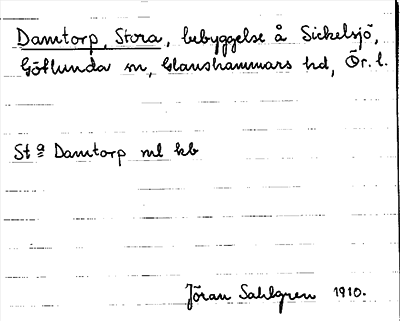 Damtorp, Stora, bebyggelse å Sickelsjö,
Götlunda sn, Glanshammars hd, Ör. l.
St a Damtorp ml kb
Jöran Sahlgren 1910.